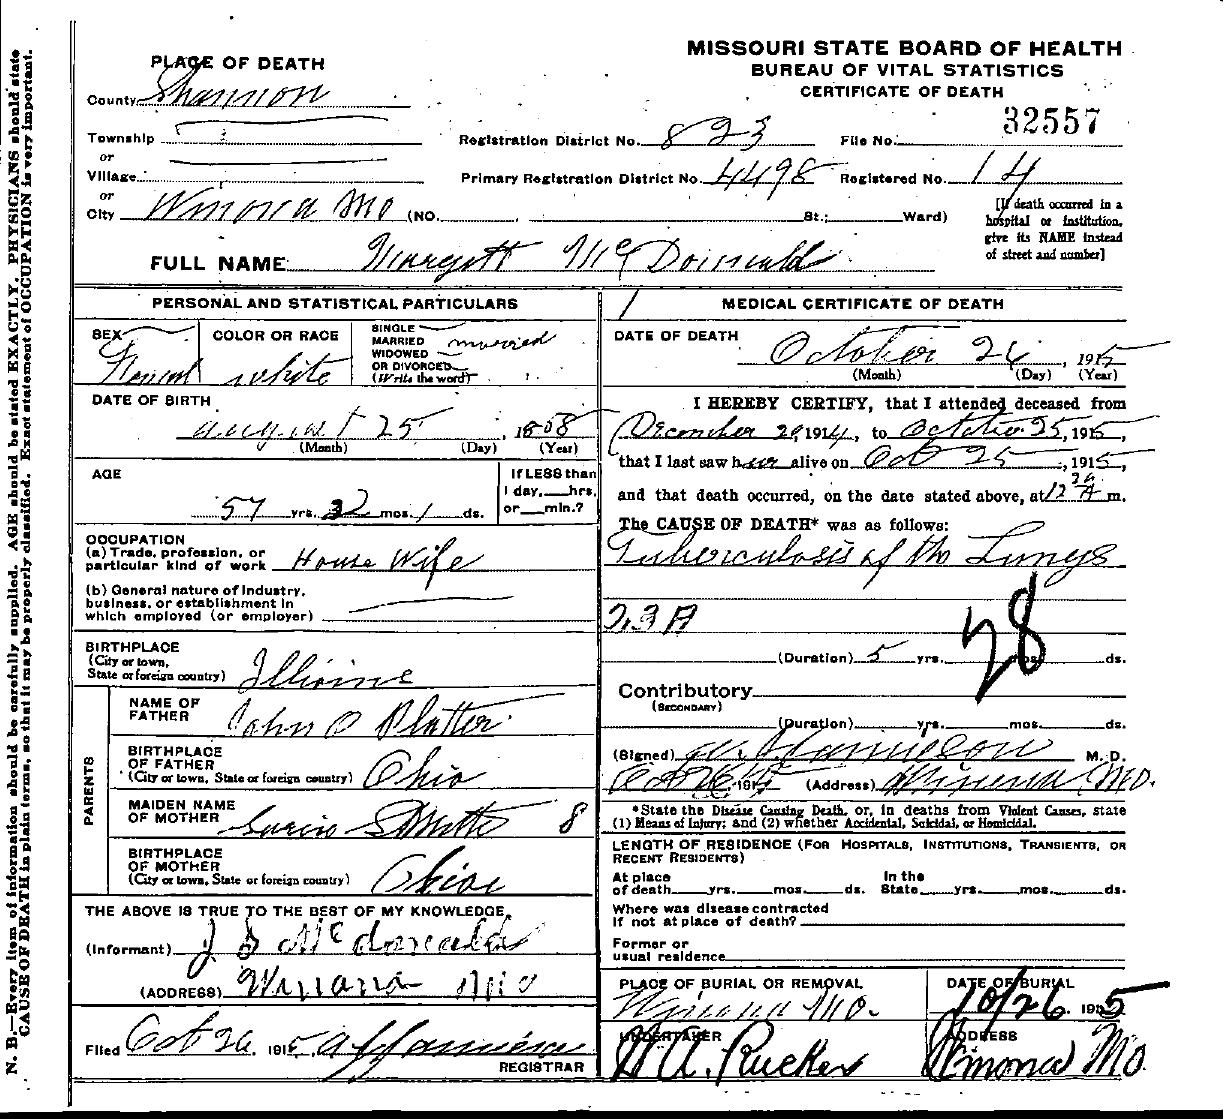 MISSOURI STATE BOARD OF HEALTH
BUREAU OF VITAL STATISTICS
CERTIFICATE OF DEATH
PLACE OF DEATH
County Shannon
32557
Township
Registration District No. 823 File No.
or
Village
Primary Registration District No. 4498 Registered No. 14
or
City Winona Mo (NO. St.; Ward)
[If death occurred in a
hospital or institution,
give its NAME instead
of street and number]
FULL NAME Margett McDonald
PERSONAL AND STATISTICAL PARTICULARS
SEX
COLOR OR RACE white
SINGLE
MARRIED married
WIDOWED
OR DIVORCED
(Write the word)
DATE OF BIRTH
august 25, 1858
(Month) (Day) (Year)
AGE
57 yrs. 2 mos. 1 ds.
If LESS than
1 day, hrs.
or min.?
OCCUPATION
(a) Trade, profession, or
particular kind of work House Wife
(b) General nature of industry,
business, or establishment in
which employed (or employer)
BIRTHPLACE
(City or town,
State or foreign country)
PARENTS
NAME OF
FATHER John O Platter
BIRTHPLACE
OF FATHER
(City or town, State or foreign country) Ohio
MAIDEN NAME
OF MOTHER 8
BIRTHPLACE
OF MOTHER
(City or town, State or foreign country)
THE ABOVE IS TRUE TO THE BEST OF MY KNOWLEDGE
(Informant) J S McDonald
(ADDRESS) Winona Mo
Filed Oct 26, 1915
REGISTRAR
MEDICAL CERTIFICATE OF DEATH
DATE OF DEATH
October 26, 1915
(Month) (Day) (Year)
I HEREBY CERTIFY, that I attended deceased from
December 29, 1914, to October 25, 1915,
that I last saw her alive on Oct 25, 1915,
and that death occurred, on the date stated above, at 12 20 A m.
The CAUSE OF DEATH* was as follows:
Tuberculosis of the Lungs
23A
28
(Duration) 5 yrs. mos. ds.
Contributory
(SECONDARY)
(Duration) yrs. mos. ds.
(Signed) M. D.
Oct 26, 1915 (Address) Winona Mo.
*State the Disease Causing Death, or, in deaths from Violent Causes, state
(1) Means of Injury; and (2) whether Accidental, Suicidal, or Homicidal.
LENGTH OF RESIDENCE (FOR HOSPITALS, INSTITUTIONS, TRANSIENTS, OR
RECENT RESIDENTS)
At place In the
of death yrs. mos. ds. State yrs. mos. ds.
Where was disease contracted
if not at place of death?
Former or
usual residence
PLACE OF BURIAL OR REMOVAL
Winona Mo.
DATE OF BURIAL
10/26 1915
UNDERTAKER
H A. Rucker
ADDRESS
Winona Mo.
N. B.—Every item of information should be carefully supplied. AGE should be stated EXACTLY. PHYSICIANS should state
CAUSE OF DEATH in plain terms, so that it may be properly classified. Exact statement of OCCUPATION is very important.